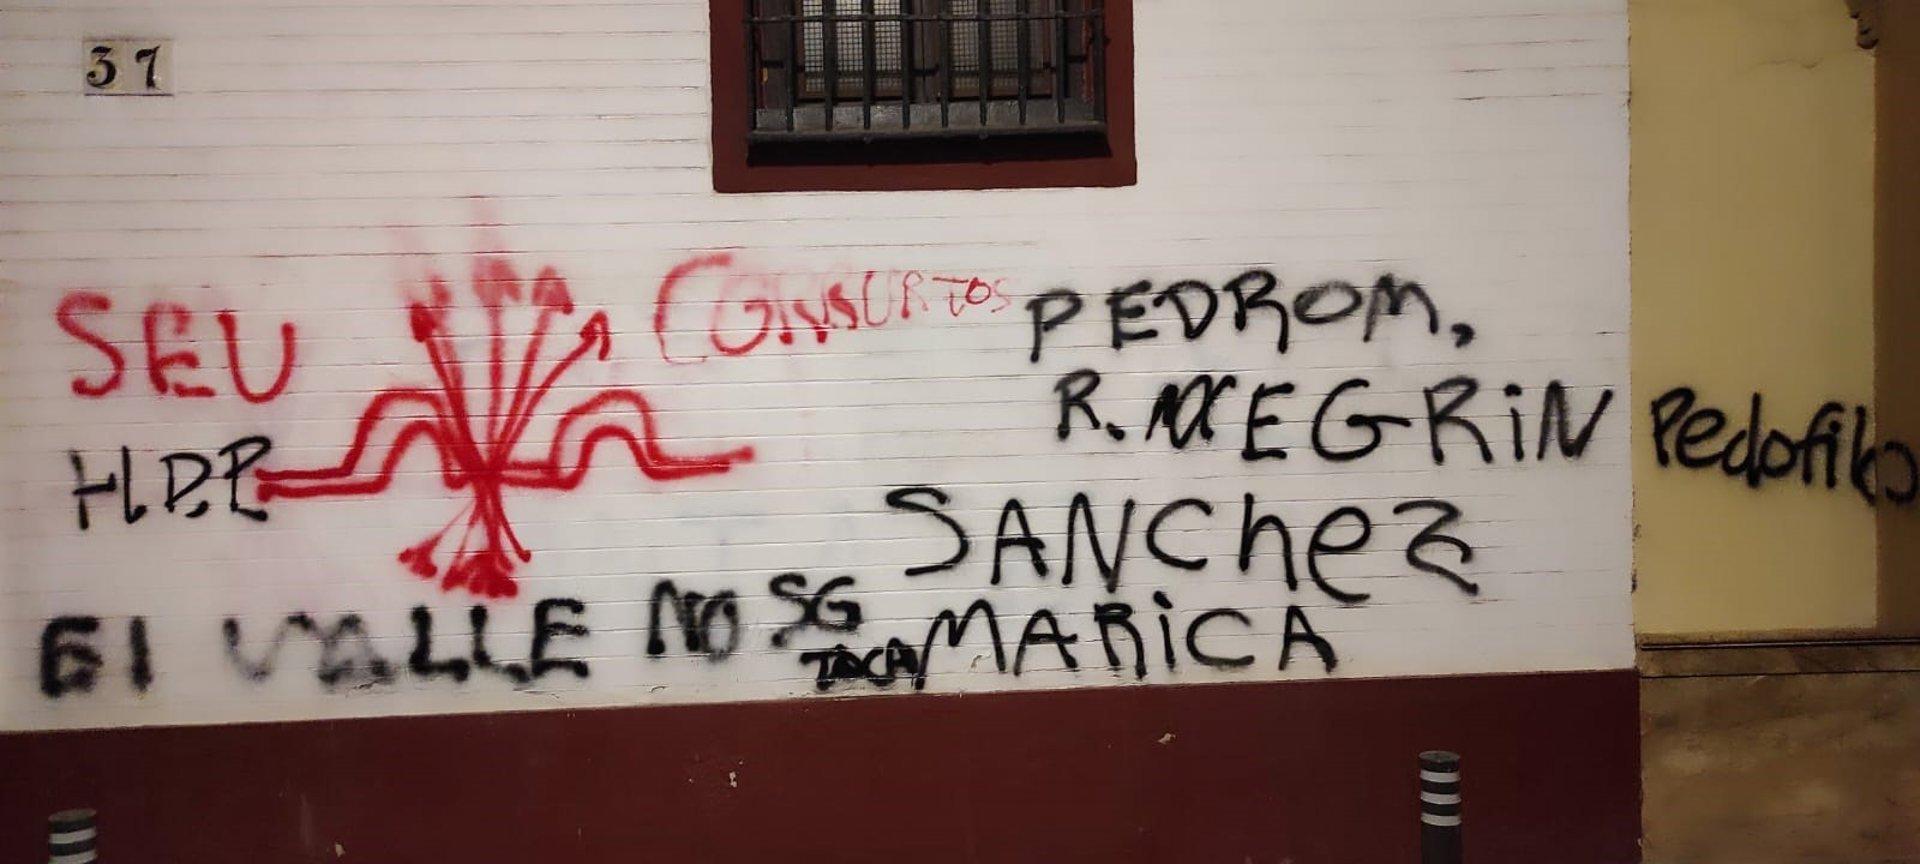 37
SEU
CON
PEDRO M,
R. NEGRiN
Pedofilo
H.D.P
SANCheZ
El VALLE NO SG
TOCA
MARiCA